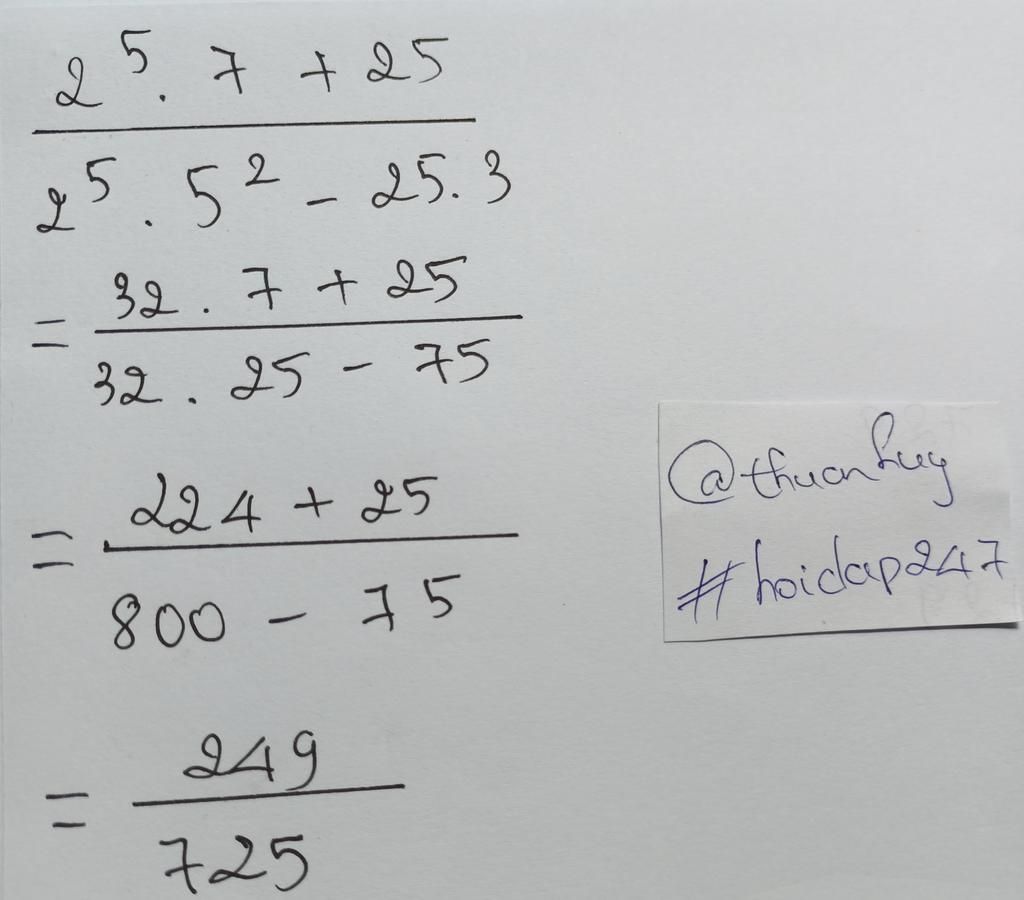 2⁵ . 7 + 25
2⁵ . 5² - 25 . 3
= 32 . 7 + 25
32 . 25 - 75
= 224 + 25
800 - 75
= 249
725
@thuanhuy
#hoidap247